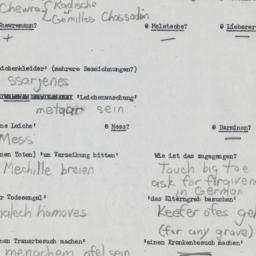 Chewra Kadische
Gemilles Chassodim
Chewremann? @ Melatsche? @ Lieferer
+
ichenkleider' (mehrere Bezeichnungen?)
ssarjenes
'Leichenwaschung'
metaar sein
ne Leiche' @ Mess? @ Barminen?
Mess
nen Toten) 'um Verzeihung bitten' Wie ist das zugegangen?
Mechille breien Touch big toe
ask for forgiveness
in German
er Todesengel' 'das Elterngrab besuchen'
malech hamoves Keefer ofes geh
(for any grave)
nen Trauerbesuch machen' 'einen Krankenbesuch machen'
menachem ofel sein